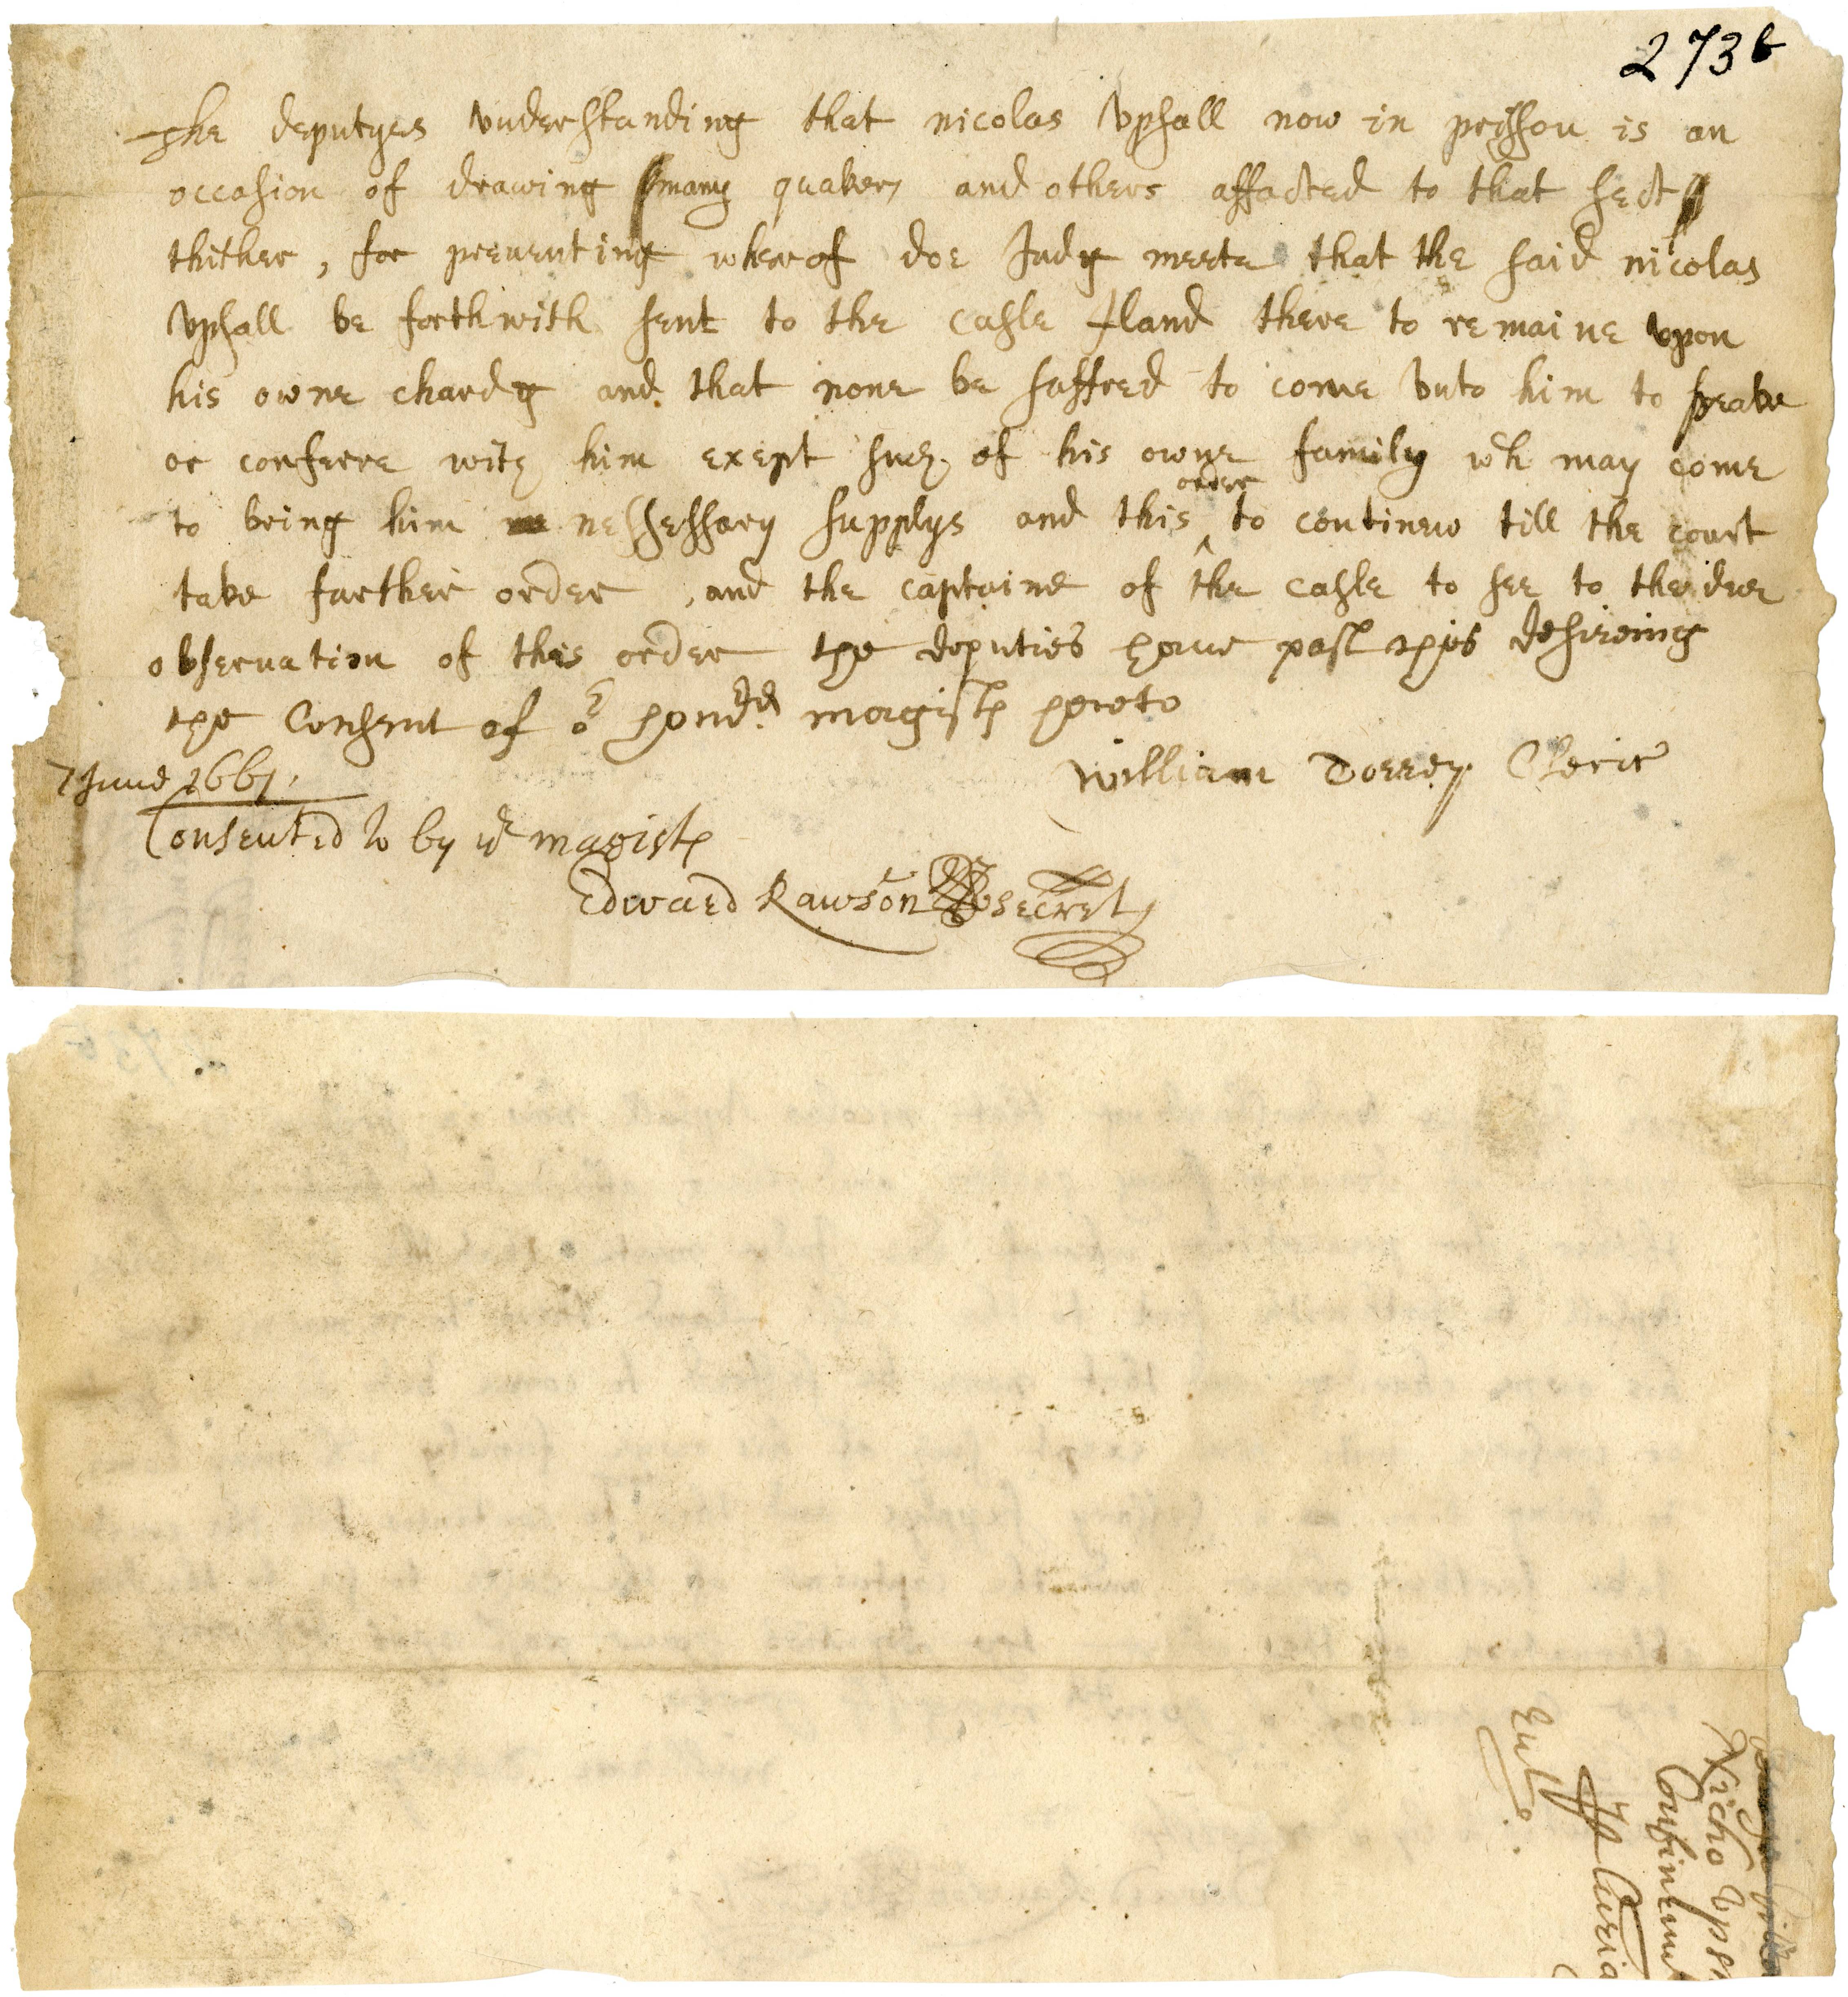 273b
The deputyes vnderstanding that nicolas Vpsall now in prisson is an
occasion of drawing many quakers and others affacted to that sect
thither, for preuenting whereof doe Judg meete that the said nicolas
Vpsall be forthwith sent to the Casle Iland there to remaine vpon
his owne chardg and that none be suffred to come vnto him to speake
or conferre with him exept such of his owne family wch may come
to bring him nessessary supplys and this order to continew till the court
take further order, and the captaine of the Casle to see to the due
observation of this order the deputies haue past this desireing
the Consent of or honord magists hereto
William Torrey Cleric
7 June 1661.
Consented to by ye magists
Edward Rawson Secrety
Nicho Vps
Confinem
Curia
Ent